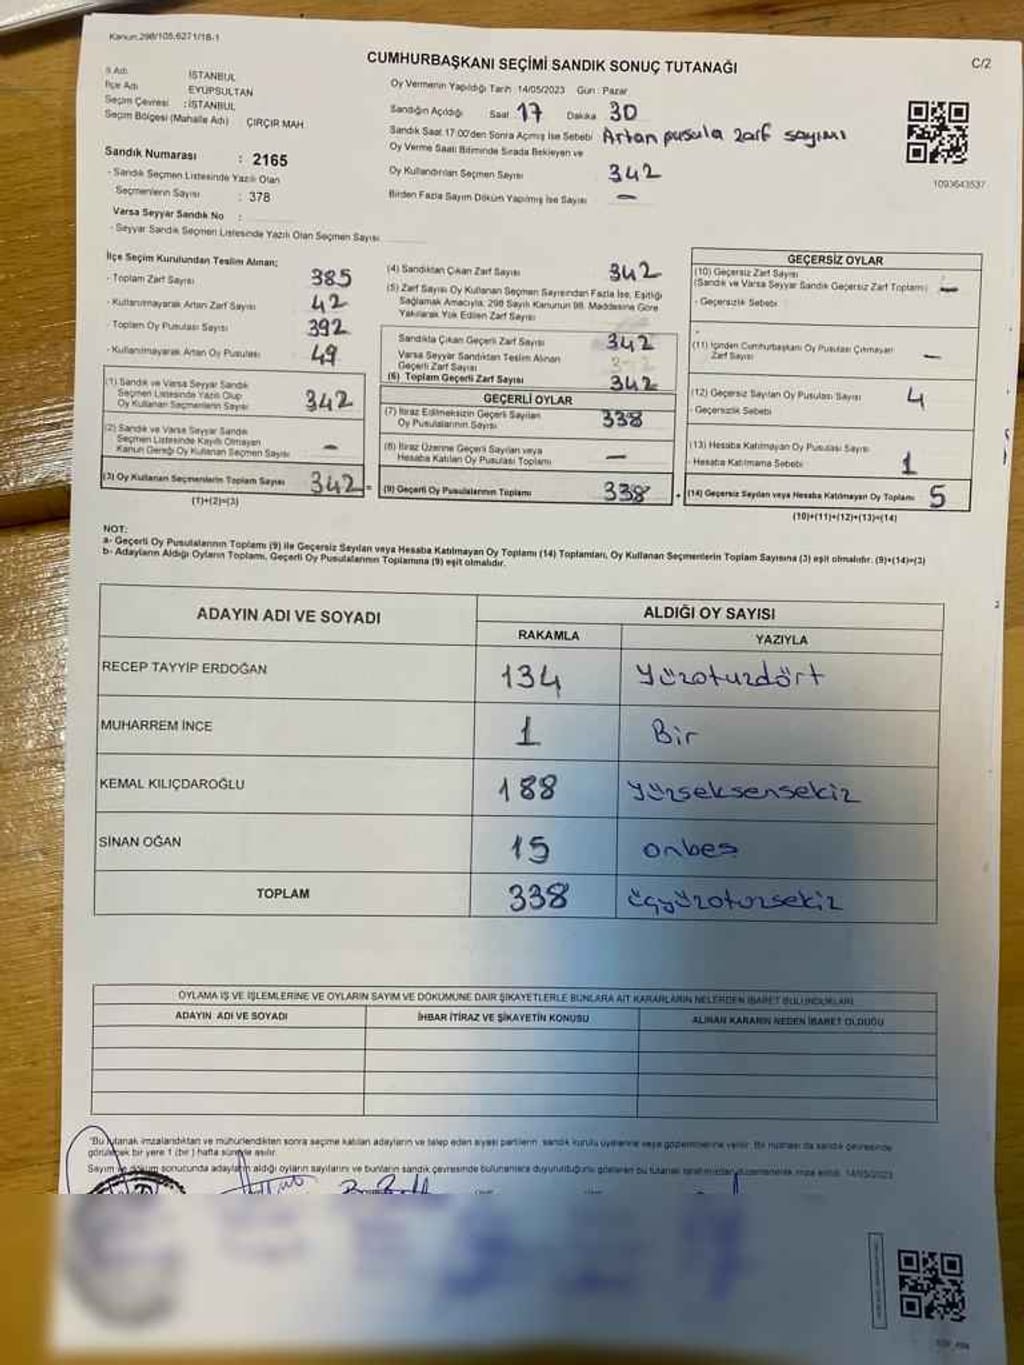 Kanun:298/105,6271/18-1
CUMHURBAŞKANI SEÇİMİ SANDIK SONUÇ TUTANAĞI
C/2
İl Adı İSTANBUL
İlçe Adı EYÜPSULTAN
Seçim Çevresi : İSTANBUL
Seçim Bölgesi (Mahalle Adı) ÇIRÇIR MAH
Sandık Numarası : 2165
- Sandık Seçmen Listesinde Yazılı Olan
Seçmenlerin Sayısı : 378
Varsa Seyyar Sandık No :
- Seyyar Sandık Seçmen Listesinde Yazılı Olan Seçmen Sayısı
Oy Vermenin Yapıldığı Tarih : 14/05/2023 Gün : Pazar
Sandığın Açıldığı Saat 17 Dakika 30
Sandık Saat 17.00'den Sonra Açmış İse Sebebi Artan pusula zarf sayımı
Oy Verme Saati Bitiminde Sırada Bekleyen ve
Oy Kullandırılan Seçmen Sayısı 342
Birden Fazla Sayım Döküm Yapılmış İse Sayısı —
1093643537
İlçe Seçim Kurulundan Teslim Alınan;
- Toplam Zarf Sayısı 385
- Kullanılmayarak Artan Zarf Sayısı 42
- Toplam Oy Pusulası Sayısı 392
- Kullanılmayarak Artan Oy Pusulası 49
(1) Sandık ve Varsa Seyyar Sandık
Seçmen Listesinde Yazılı Olup
Oy Kullanan Seçmenlerin Sayısı 342
(2) Sandık ve Varsa Seyyar Sandık
Seçmen Listesinde Kayıtlı Olmayan
Kanun Gereği Oy Kullanan Seçmen Sayısı —
(3) Oy Kullanan Seçmenlerin Toplam Sayısı 342 =
(1)+(2)=(3)
(4) Sandıktan Çıkan Zarf Sayısı 342
(5) Zarf Sayısı Oy Kullanan Seçmen Sayısından Fazla İse, Eşitliği
Sağlamak Amacıyla, 298 Sayılı Kanunun 98. Maddesine Göre
Yakılarak Yok Edilen Zarf Sayısı
Sandıkta Çıkan Geçerli Zarf Sayısı 342
Varsa Seyyar Sandıktan Teslim Alınan
Geçerli Zarf Sayısı
(6) Toplam Geçerli Zarf Sayısı 342
GEÇERLİ OYLAR
(7) İtiraz Edilmeksizin Geçerli Sayılan
Oy Pusulalarının Sayısı 338
(8) İtiraz Üzerine Geçerli Sayılan veya
Hesaba Katılan Oy Pusulası Toplamı —
(9) Geçerli Oy Pusulalarının Toplamı 338 +
GEÇERSİZ OYLAR
(10) Geçersiz Zarf Sayısı
(Sandık ve Varsa Seyyar Sandık Geçersiz Zarf Toplamı) —
- Geçersizlik Sebebi
(11) İçinden Cumhurbaşkanı Oy Pusulası Çıkmayan
Zarf Sayısı —
(12) Geçersiz Sayılan Oy Pusulası Sayısı 4
- Geçersizlik Sebebi
(13) Hesaba Katılmayan Oy Pusulası Sayısı
- Hesaba Katılmama Sebebi 1
(14) Geçersiz Sayılan veya Hesaba Katılmayan Oy Toplamı 5
(10)+(11)+(12)+(13)=(14)
NOT:
a- Geçerli Oy Pusulalarının Toplamı (9) ile Geçersiz Sayılan veya Hesaba Katılmayan Oy Toplamı (14) Toplamları, Oy Kullanan Seçmenlerin Toplam Sayısına (3) eşit olmalıdır. (9)+(14)=(3)
b- Adayların Aldığı Oyların Toplamı, Geçerli Oy Pusulalarının Toplamına (9) eşit olmalıdır.
ADAYIN ADI VE SOYADI ALDIĞI OY SAYISI
RAKAMLA YAZIYLA
RECEP TAYYİP ERDOĞAN 134 Yüzotuzdört
MUHARREM İNCE 1 Bir
KEMAL KILIÇDAROĞLU 188 Yüzseksensekiz
SİNAN OĞAN 15 onbeş
TOPLAM 338 üçyüzotuzsekiz
OYLAMA İŞ VE İŞLEMLERİNE VE OYLARIN SAYIM VE DÖKÜMÜNE DAİR ŞİKAYETLERLE BUNLARA AİT KARARLARIN NELERDEN İBARET BULUNDUKLARI
ADAYIN ADI VE SOYADI İHBAR İTİRAZ VE ŞİKAYETİN KONUSU ALINAN KARARIN NEDEN İBARET OLDUĞU
"Bu tutanak imzalandıktan ve mühürlendikten sonra seçime katılan adayların ve talep eden siyasi partilerin, sandık kurulu üyelerine veya gözlemcilerine verilir. Bir nüshası da sandık çevresinde
görülecek bir yere 1 (bir) hafta süreyle asılır.
Sayım ve döküm sonucunda adayların aldığı oyların sayılarını ve bunların sandık çevresinde bulunanlara duyurulduğunu gösteren bu tutanak tarafımızdan düzenlenerek imza edildi. 14/05/2023